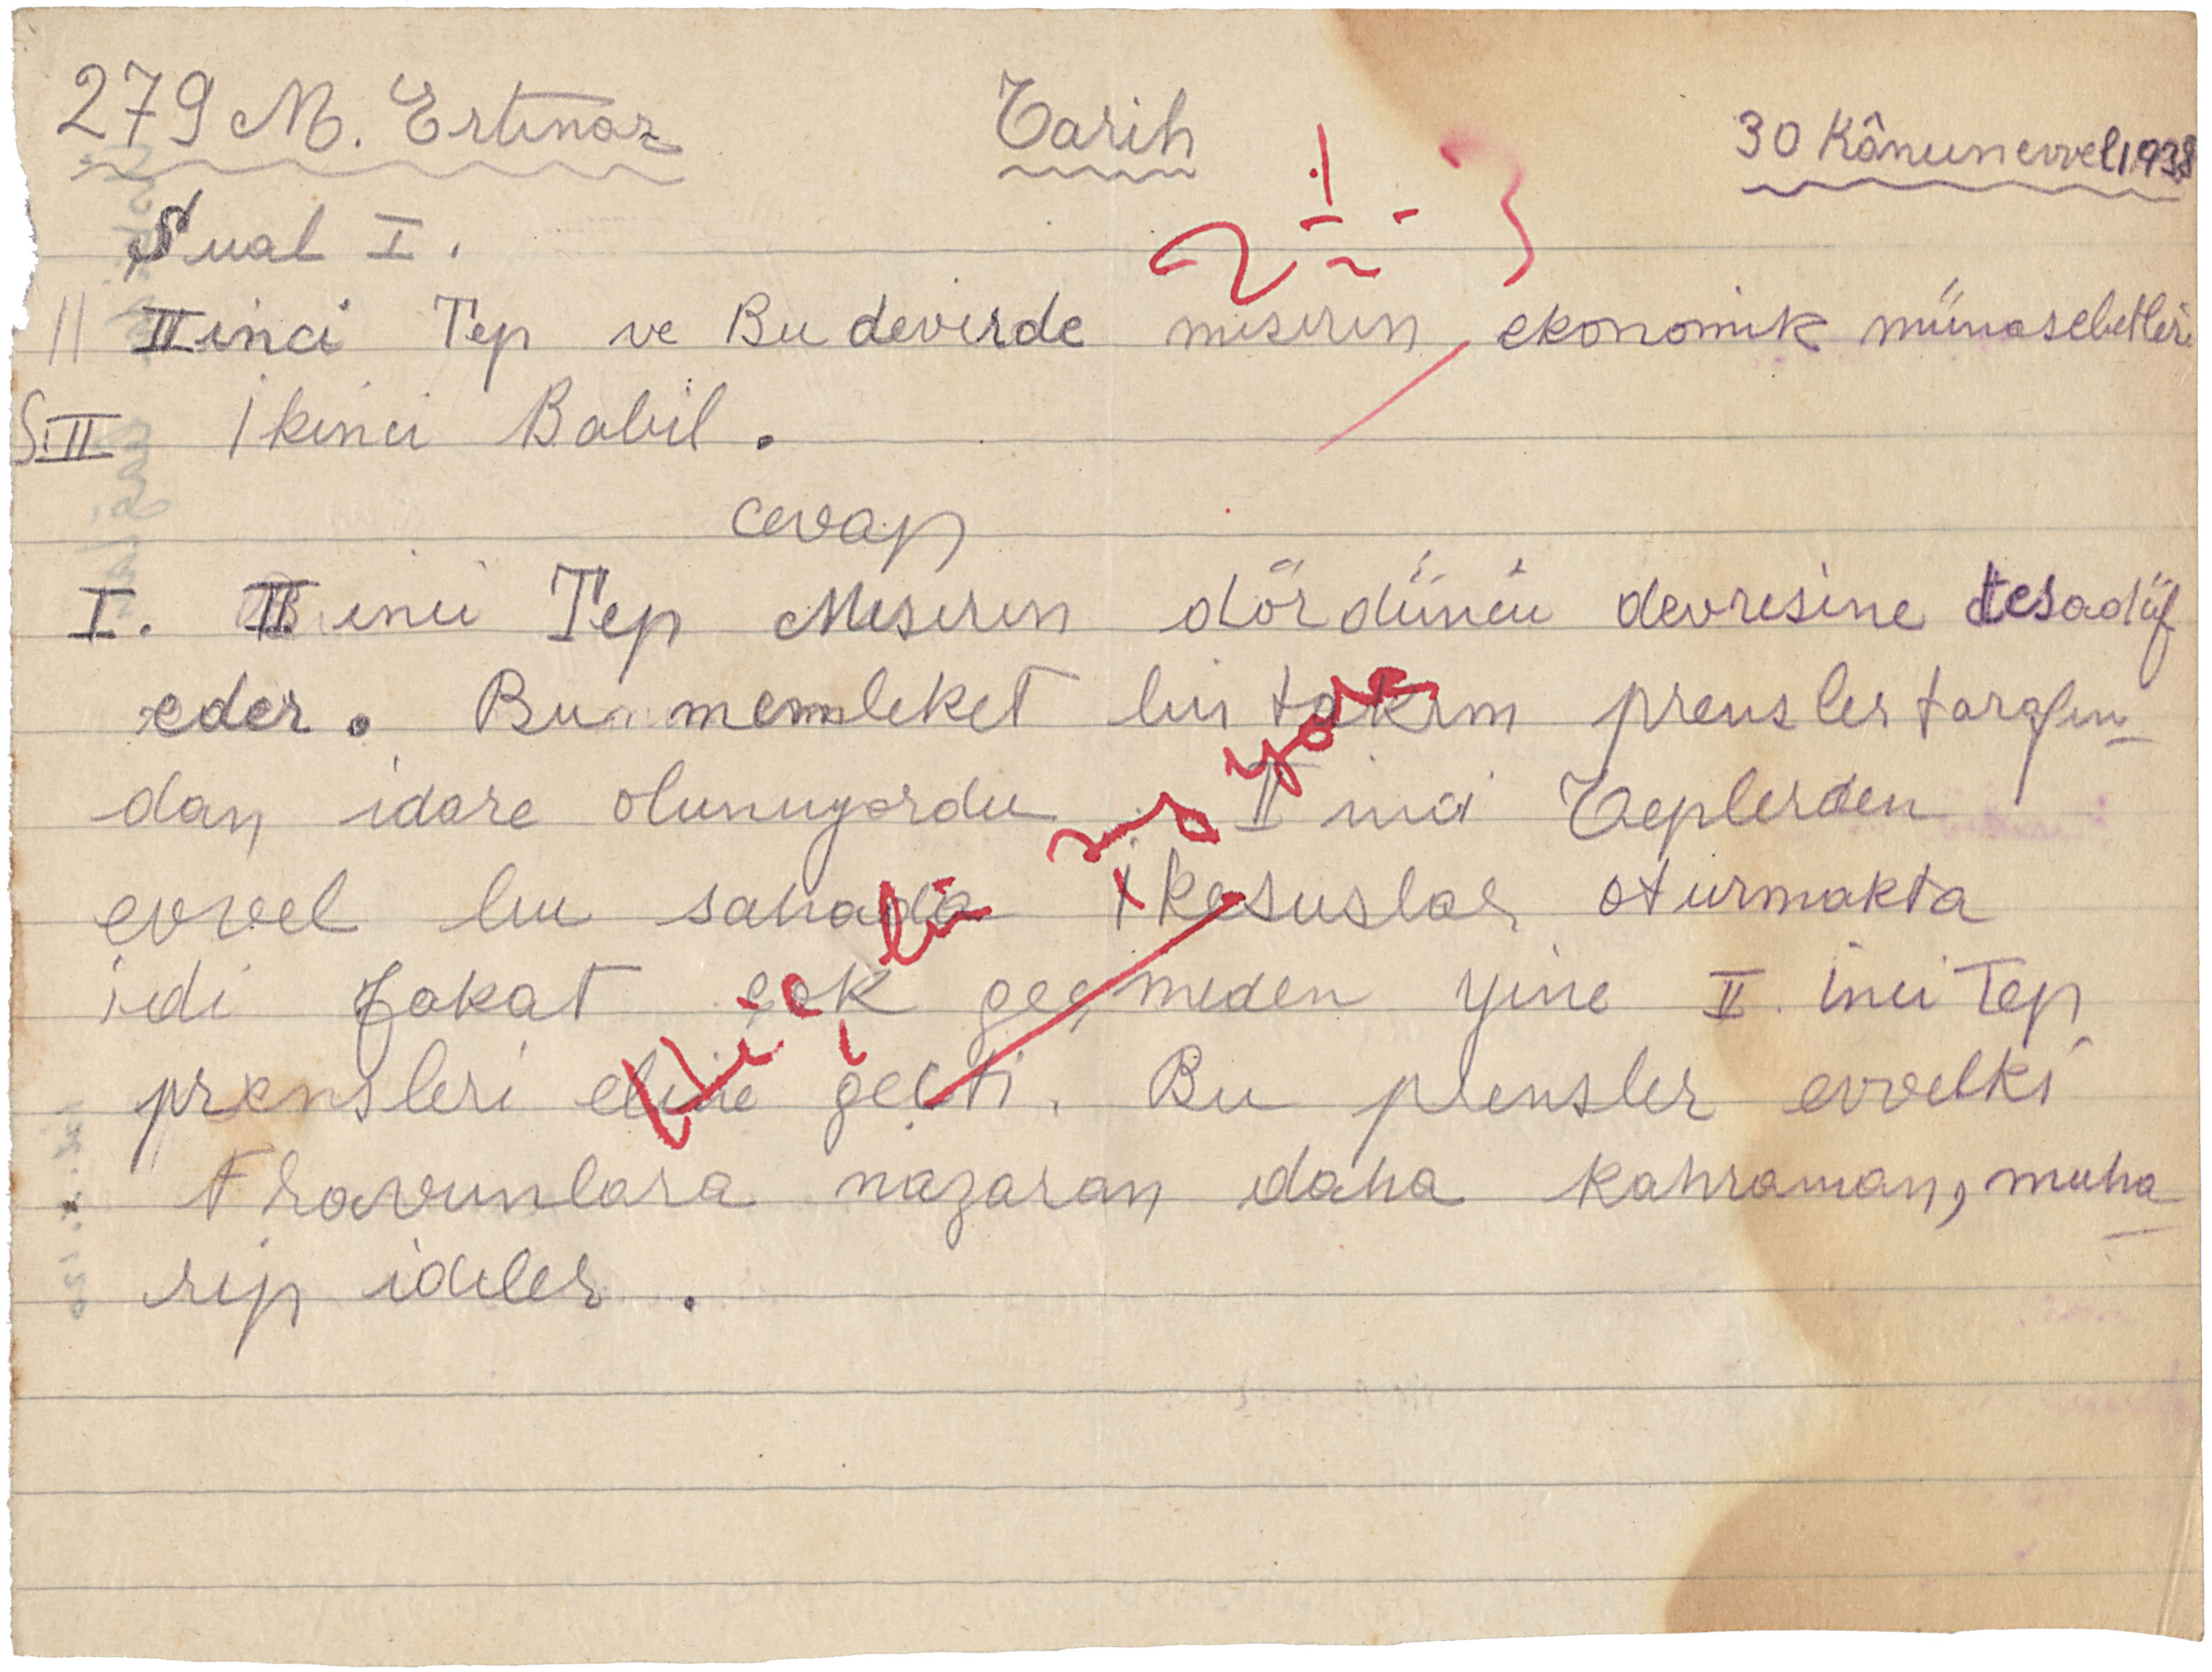 279 M. Ertınaz Tarih 30 Kânunevvel 1938
Sual I.
II inci Tep ve Bu devirde mısırın ekonomik münasebetleri
S.II İkinci Babil.
cevap
I. II inci Tep Mısırın dördüncü devresine tesadüf
eder. Bu memleket bir takım prensler tarafın-
dan idare olunuyordu. II inci Teplerden
evvel bu sahada ikesuslar oturmakta
idi fakat çok geçmeden yine II inci Tep
prensleri eline geçti. Bu prensler evvelki
Fravunlara nazaran daha kahraman, muha
rip idiler.
Hiç bir